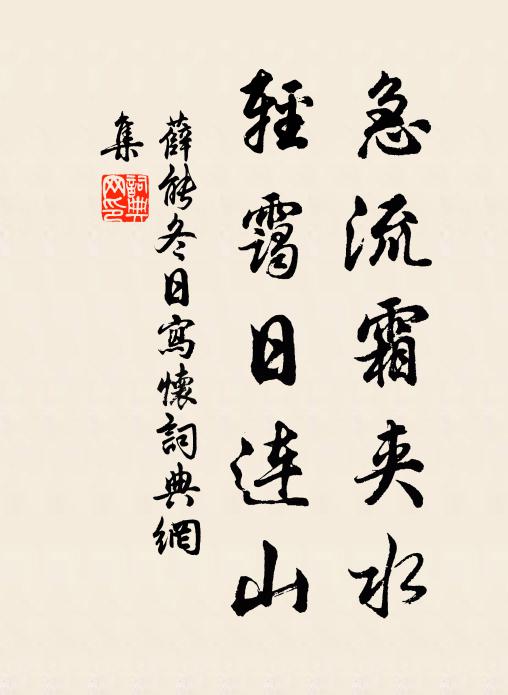 急流霜夹水
輕靄日连山
薛能冬日寫懷詞典網
集
詞典
网印